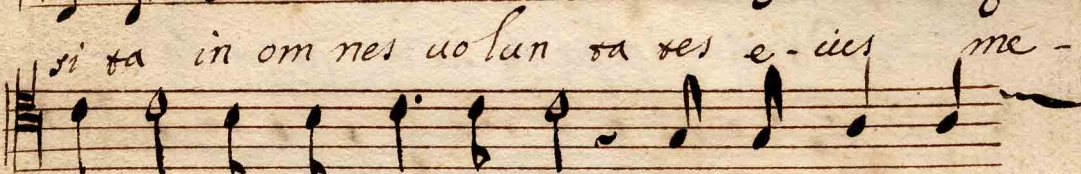 si ta in om nes uo lun ta tes e - ius me -